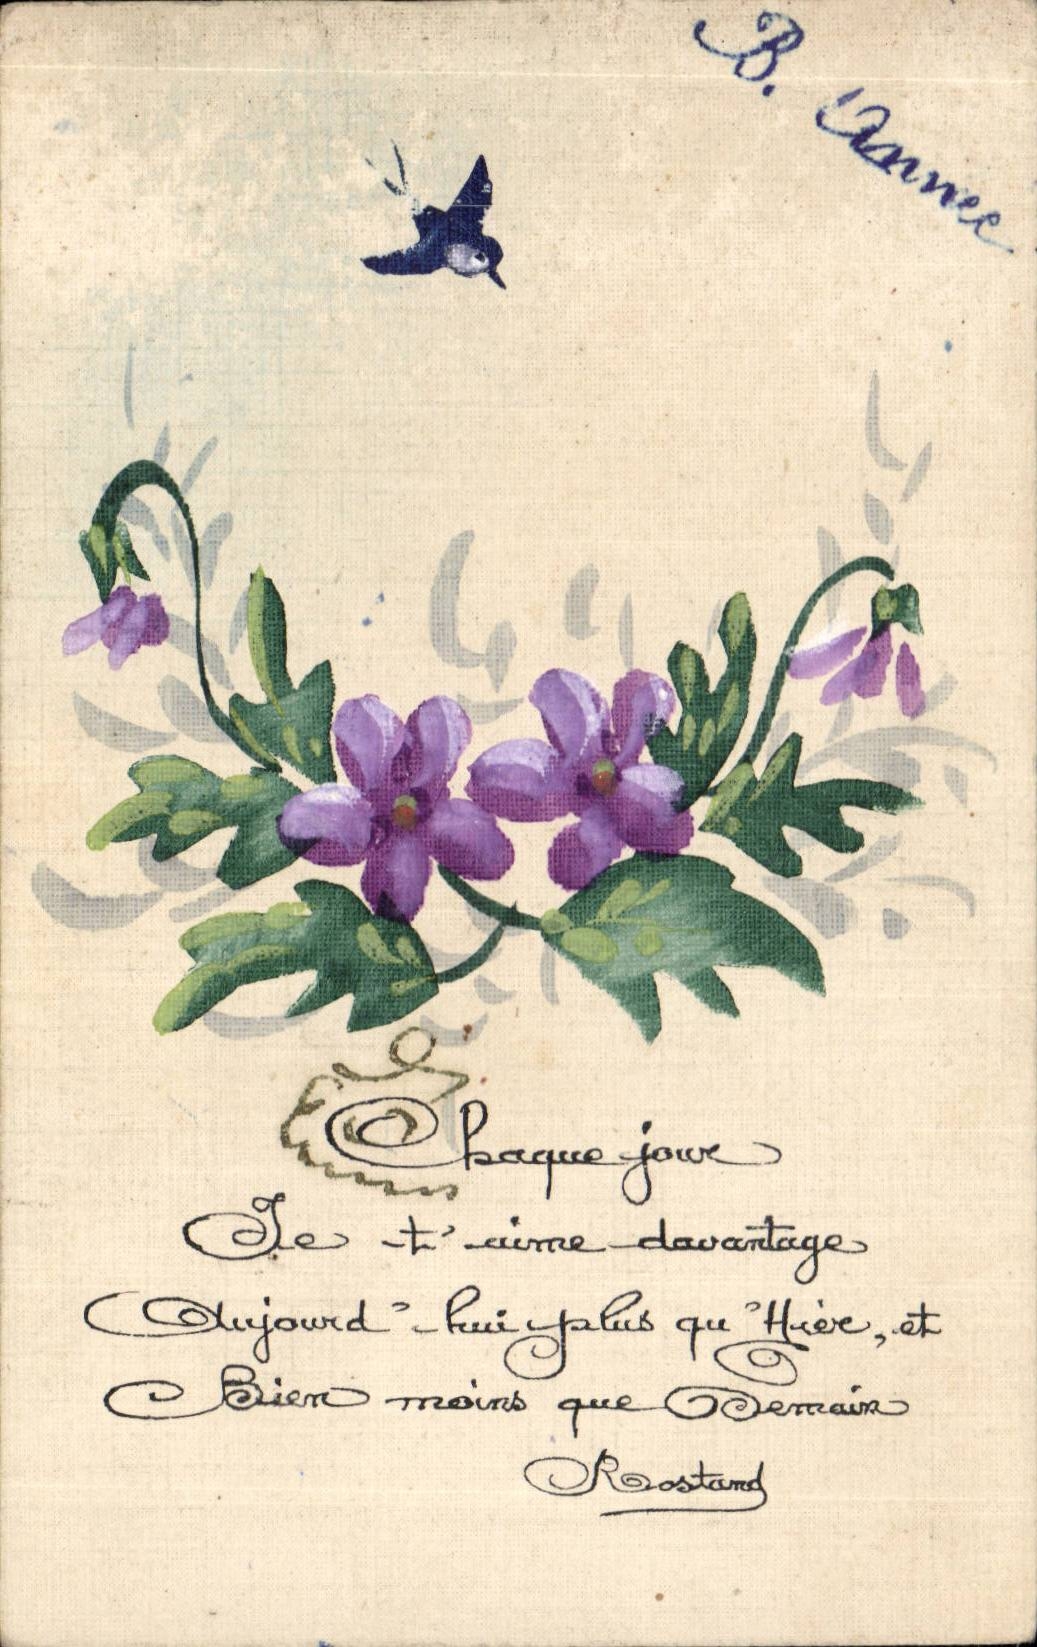 B. Annee
Chaque jour
Je t'aime davantage
Aujourd'hui plus qu'Hier, et
Bien moins que Demain
Rostand